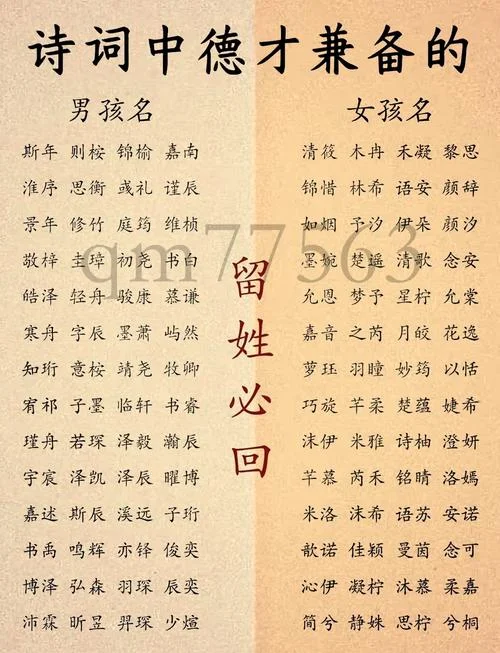 诗词中德才兼备的
男孩名
斯年 则桉 锦榆 嘉南
淮序 思衡 彧礼 谨辰
景年 修竹 庭筠 维桢
敬梓 圭璋 初尧 书白
皓泽 轻舟 骏康 慕谦
寒舟 字辰 墨萧 屿然
知珩 意桉 靖尧 牧卿
宥祁 子墨 临轩 书睿
瑾舟 若琛 泽毅 瀚辰
宇宸 泽凯 泽辰 曜博
嘉述 斯辰 溪远 子珩
书禹 鸣辉 亦铎 俊奕
博泽 弘森 羽琛 辰奕
沛霖 昕昱 羿琛 少煊
女孩名
清筱 木冉 禾凝 黎思
锦惜 林希 语安 颜辞
如烟 予汐 伊朵 颜汐
墨婉 楚遥 清歌 念安
允恩 梦予 星柠 允棠
嘉音 之芮 月皎 花逸
萝珏 羽瞳 妙筠 以恬
巧旋 芊柔 楚蕴 婕希
沫伊 米雅 诗柚 澄妍
芊慕 芮禾 铭晴 洛嫣
米洛 沫希 语苏 安诺
歆诺 佳颖 曼茵 念可
沁伊 凝柠 沐慕 柔嘉
简兮 静姝 思柠 兮桐
留姓必回
qm77563